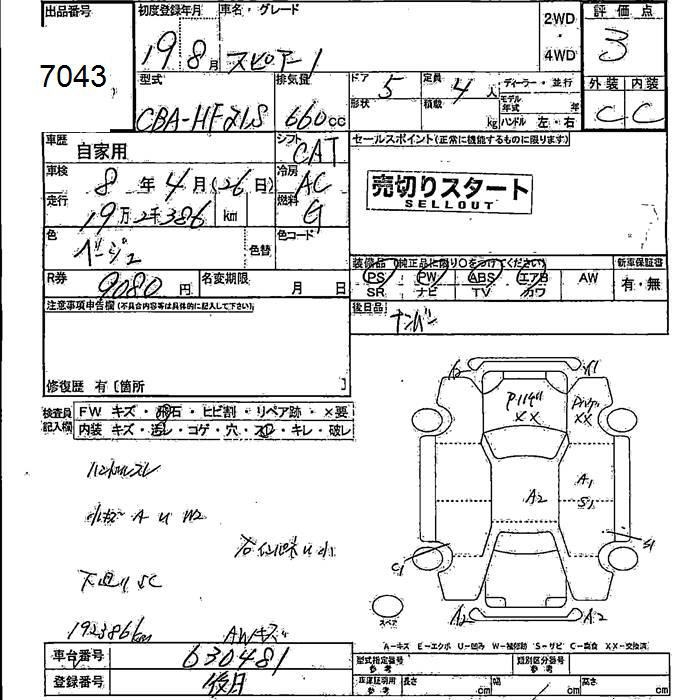 出品番号
7043
初度登録年月
19 8月
車名・グレード
スピアーノ
2WD・4WD
評価点
3
型式
CBA-HF21S
排気量
660cc
ドア
5
形状
定員
4人
積載
kg
ディーラー・並行
モデル年式 年
ハンドル 左・右
外装 内装
C C
車歴
自家用
シフト
CAT
車検
8年4月(26日)
冷房
AC
走行
19万2千386 km
燃料
G
色
ベージュ
色替
色コード
R券
9080円
名変期限
月 日
セールスポイント(正常に機能するものに限ります)
売切りスタート
SELLOUT
装備品(純正品に限り○をつけてください)
新車保証書
PS PW ABS エアB AW
SR ナビ TV カワ
有・無
後日品
ナンバー
注意事項申告欄(不具合内容等は具体的に記入して下さい)
修復歴 有〔箇所 〕
検査員記入欄
FW キズ・飛石・ヒビ割・リペア跡・×要
内装 キズ・汚レ・コゲ・穴・スレ・キレ・破レ
ハンドルスレ
下廻りSC
192386km
AWキズ
XX
XX
A2
A1
S1
S1
C1
A2
A2
スペア
A-キズ E-エクボ U-凹み W-補修跡 S-サビ C-腐食 XX-交換済
車台番号
630481
登録番号
後日
型式指定番号 参考
類別区分番号 参考
車庫証明用 参考
長さ cm
幅 cm
高さ cm